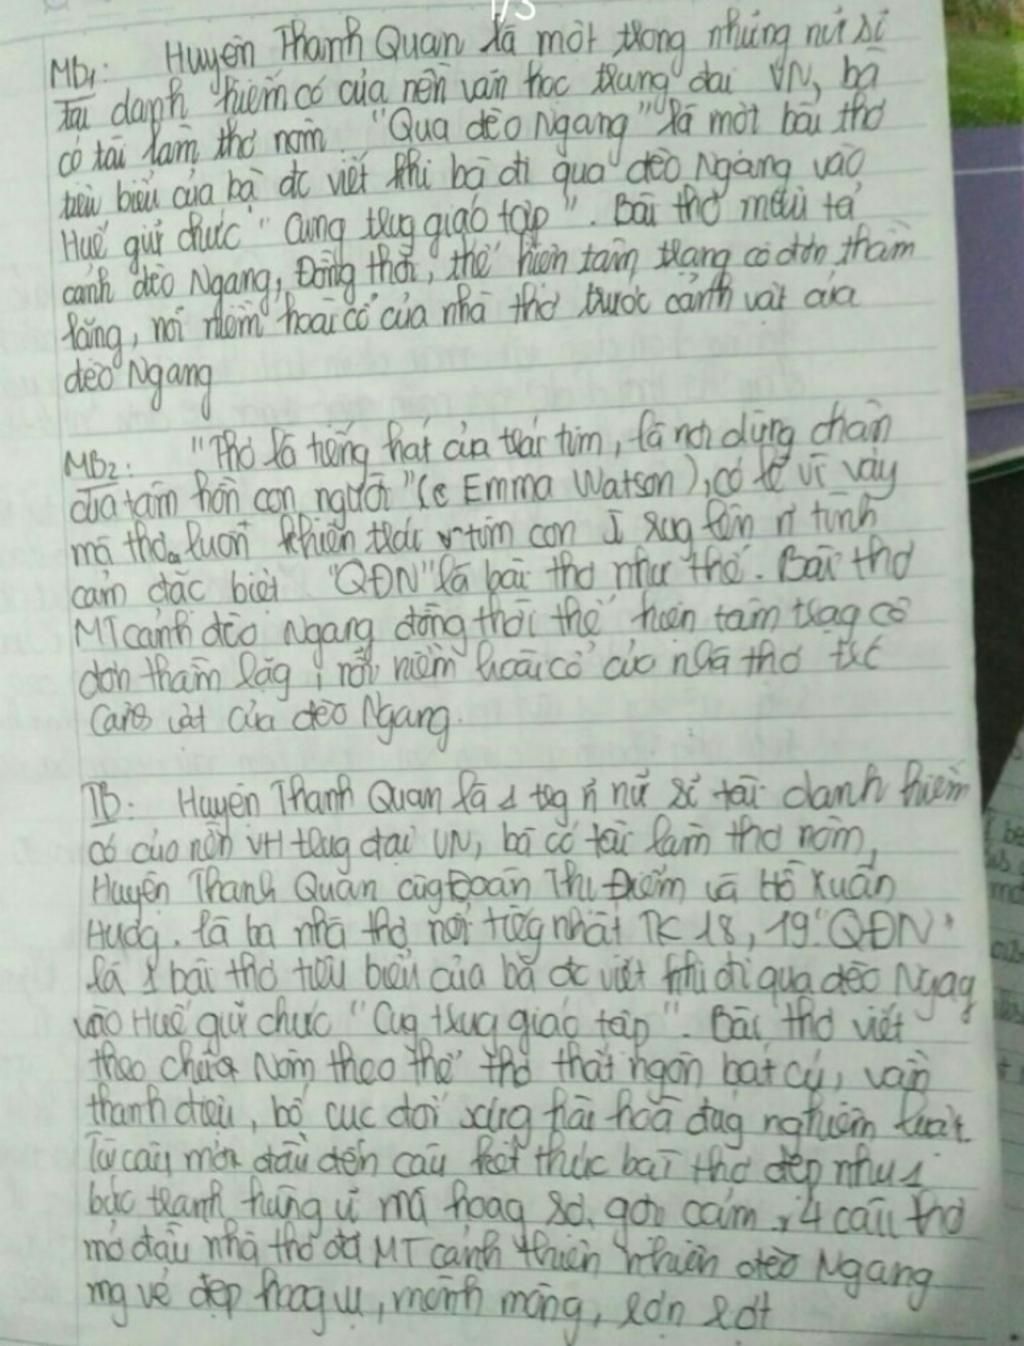 1/3
MB1: Huyện Thanh Quan là một trong những nữ sĩ
tài danh hiếm có của nền văn học trung đại VN, bà
có tài làm thơ nôm. "Qua đèo Ngang" là một bài thơ
tiêu biểu của bà đc viết khi bà đi qua đèo Ngang vào
Huế giữ chức "Cung trug giáo tập". Bài thơ miêu tả
cảnh đèo Ngang, Đồng thời, thể hiện tâm trạng cô đơn thầm
lặng, nỗi niềm hoài cổ của nhà thơ trước cảnh vật của
đèo Ngang
MB2: "Thơ là tiếng hát của trái tim, là nơi dừng chân
của tâm hồn con người" (Emma Watson), có lẽ vì vậy
mà thơ luôn khiến trái tim con rug lên tình
cảm đặc biệt "QĐN" là bài thơ như thế. Bài thơ
MT cảnh đèo Ngang đồng thời thể hiện tâm trag cô
đơn thầm lặg, nỗi niềm hoài cổ của nhà thơ trc
cảnh vật của đèo Ngang.
TB: Huyện Thanh Quan là 1 trg n~ nữ sĩ tài danh hiếm
có của nền VH trug đại VN, bà có tài làm thơ nôm,
Huyện Thanh Quan cùg Đoàn Thị Điểm và Hồ Xuân
Hươg. là ba nhà thơ nổi tiếg nhất TK 18, 19. "QĐN"
là 1 bài thơ tiêu biểu của bà đc viết khi đi qua đèo Ngag
vào Huế giữ chức "Cug trug giáo tập". Bài thơ viết
theo chữ Nôm theo thể thơ thất ngôn bát cú, vần
thanh điệu, bố cục đối xứng hài hoà đúg nghiêm luật
Từ câu mở đầu đến câu kết thúc bài thơ đẹp như 1
bức tranh hùng vĩ mà hoag sơ, gợi cảm, 4 câu thơ
mở đầu nhà thơ đã MT cảnh thiên nhiên đèo Ngang
mg vẻ đẹp hoag vu, mênh mông, rợn rợt